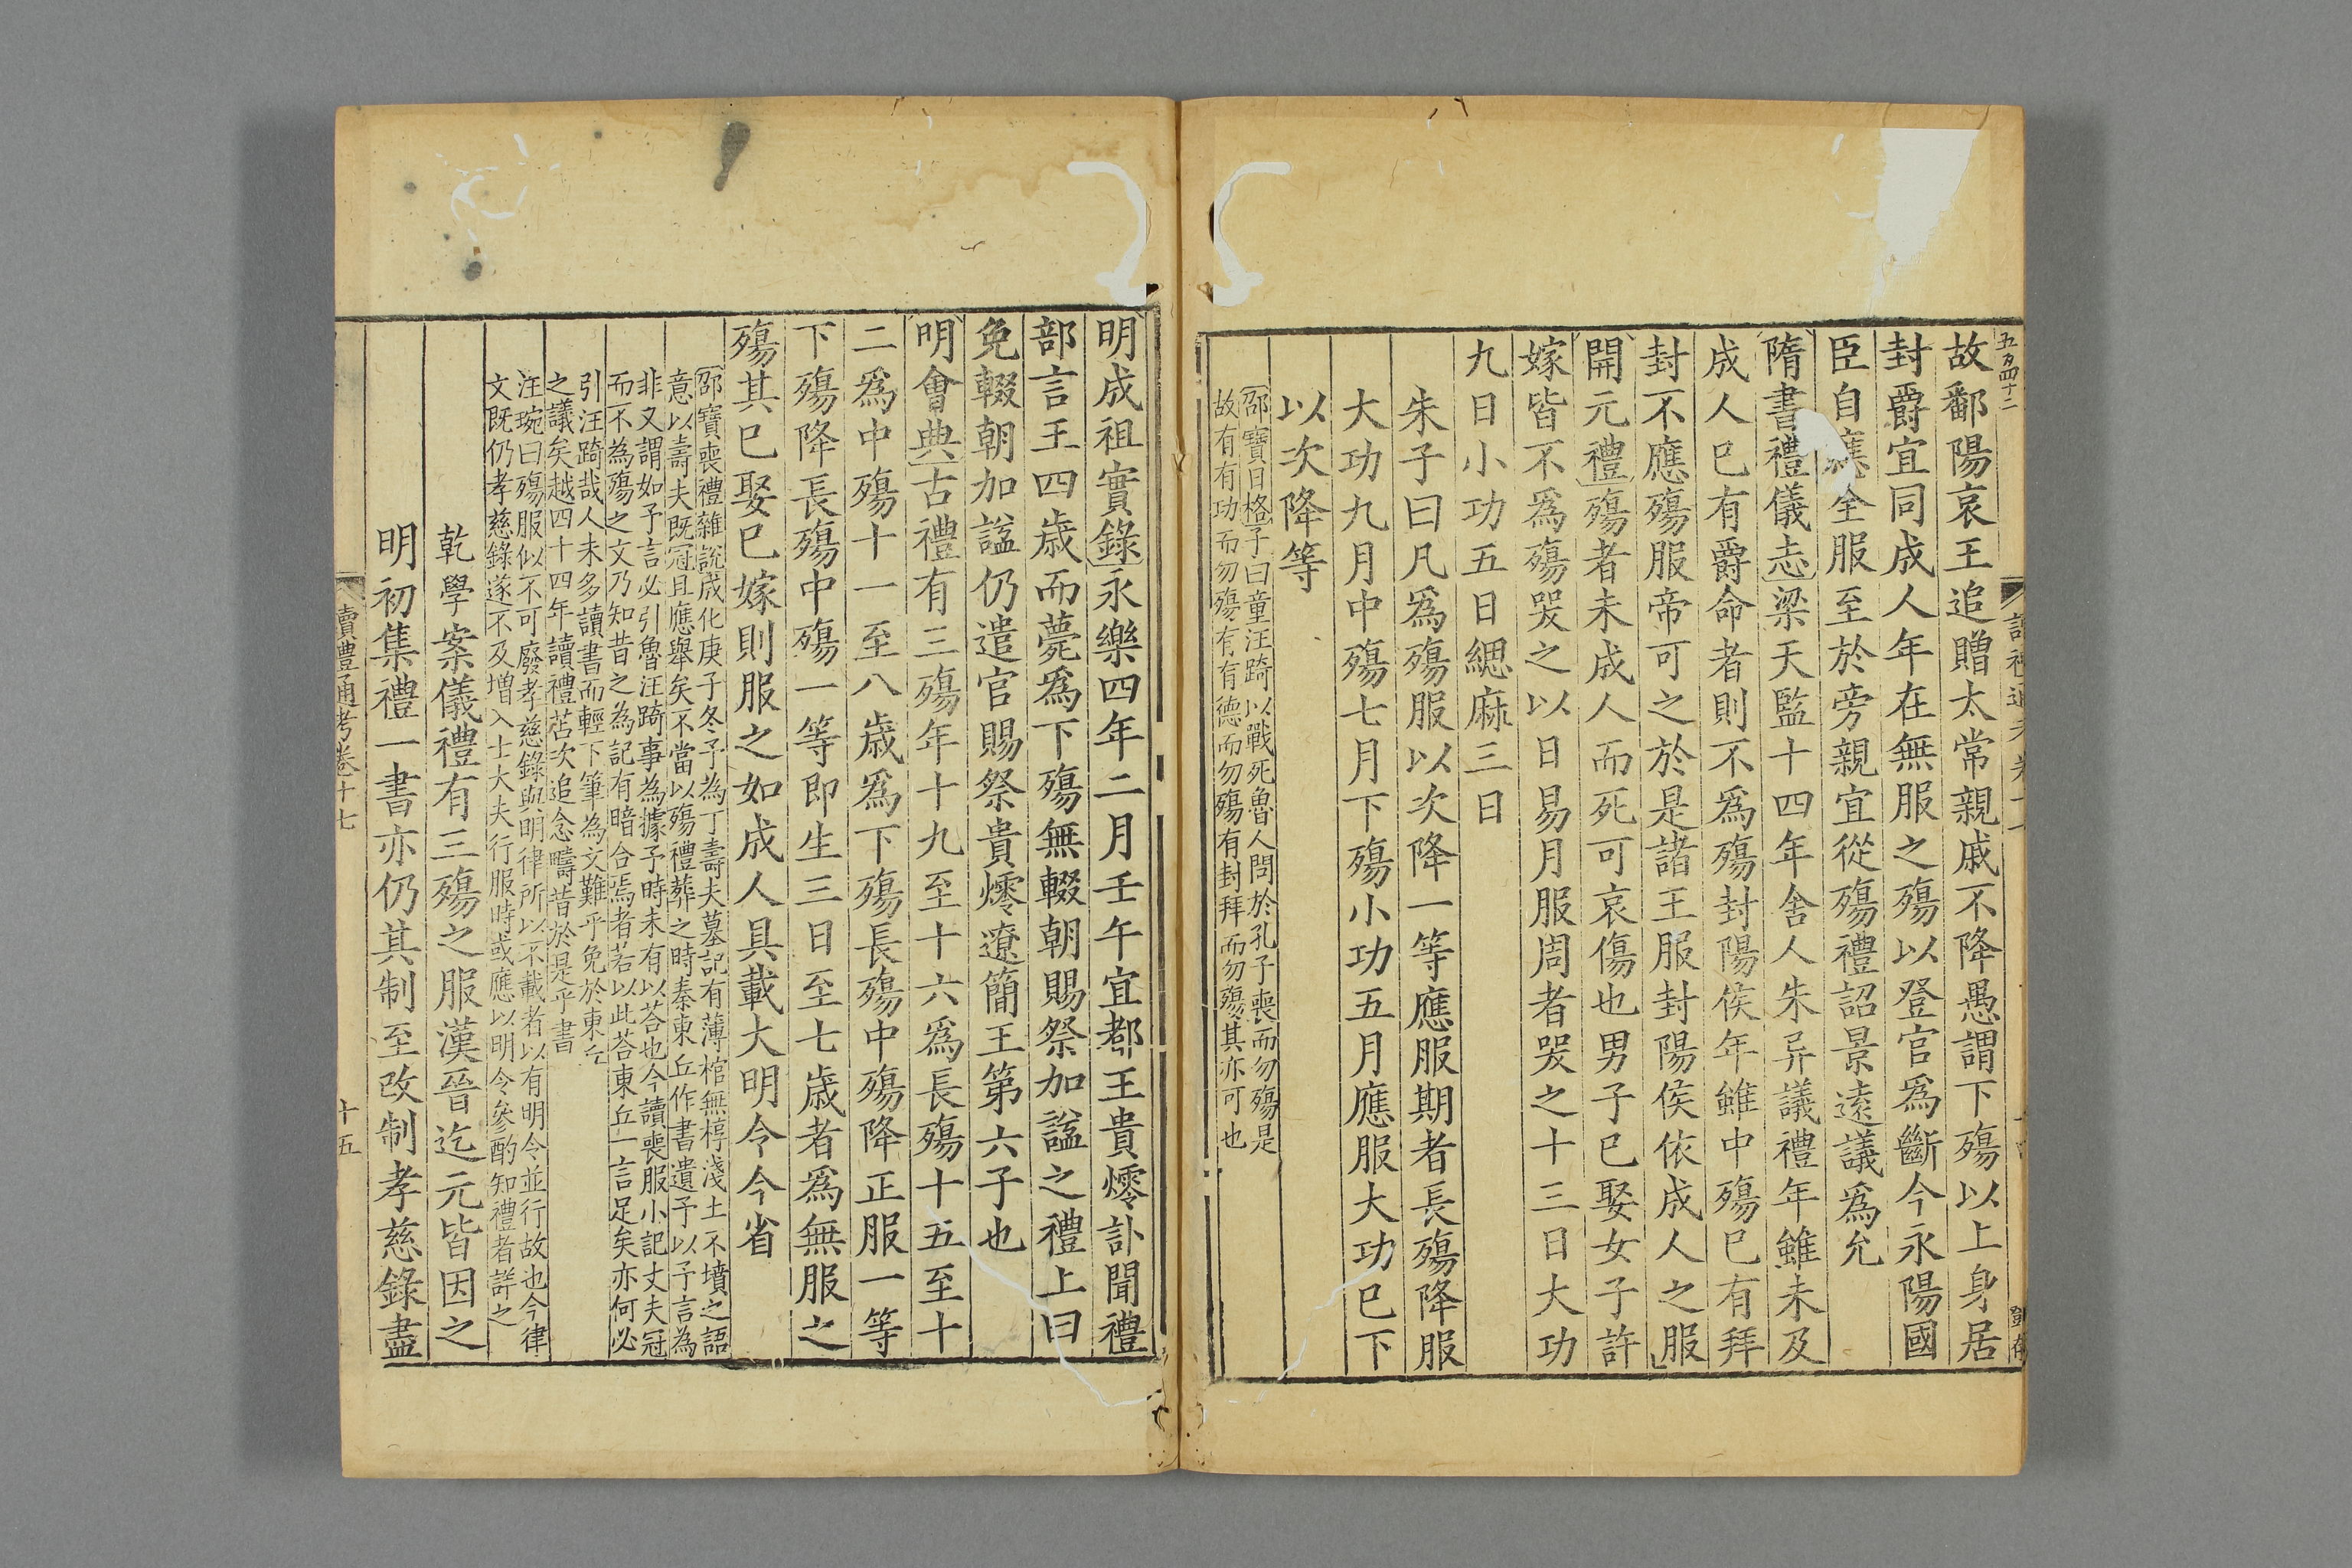 故鄱陽哀王追贈太常親戚不降愚謂下殤以上身居
封爵宜同成人年在無服之殤以登官爲斷今永陽國
臣自應全服至於旁親宜從殤禮詔景遠議爲允
隋書禮儀志梁天監十四年舍人朱异議禮年雖未及
成人已有爵命者則不爲殤封陽侯年雖中殤已有拜
封不應殤服帝可之於是諸王服封陽侯依成人之服
開元禮殤者未成人而死可哀傷也男子已娶女子許
嫁皆不爲殤哭之以日易月服周者哭之十三日大功
九日小功五日緦麻三日
朱子曰凡爲殤服以次降一等應服期者長殤降服
大功九月中殤七月下殤小功五月應服大功已下
以次降等
邵寶日格子曰童汪踦以戰死魯人問於孔子喪而勿殤是
故有有功而勿殤有有德而勿殤有封拜而勿殤其亦可也
明成祖實錄永樂四年二月壬午宜都王貴㷸訃聞禮
部言王四歲而薨爲下殤無輟朝賜祭加諡之禮上曰
免輟朝加諡仍遣官賜祭貴㷸遼簡王第六子也
明會典古禮有三殤年十九至十六爲長殤十五至十
二爲中殤十一至八歲爲下殤長殤中殤降正服一等
下殤降長殤中殤一等即生三日至七歲者爲無服之
殤其已娶已嫁則服之如成人具載大明令今省
邵寶喪禮雜說成化庚子冬予為丁壽夫墓記有薄棺無椁淺土不墳之語
意以壽夫既冠且應舉矣不當以殤禮葬之時秦東丘作書遺予以予言為
非又謂如予言必引魯汪踦事為據予時未有以荅也今讀喪服小記丈夫冠
而不為殤之文乃知昔之為記有暗合焉者若以此荅東丘一言足矣亦何必
引汪踦哉人未多讀書而輕下筆為文難乎免於東丘
之議矣越四十四年讀禮苫次追念疇昔於是乎書
汪琬曰殤服似不可廢孝慈錄與明律所以不載者以有明令並行故也今律
文既仍孝慈錄遂不及增入士大夫行服時或應以明令叅酌知禮者詳之
乾學案儀禮有三殤之服漢晉迄元皆因之
明初集禮一書亦仍其制至改制孝慈錄盡
讀禮通考卷十七
十五